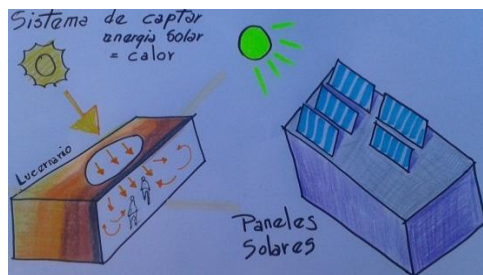 Sistema de captar
energia Solar
= calor
Lucernario
Paneles
Solares